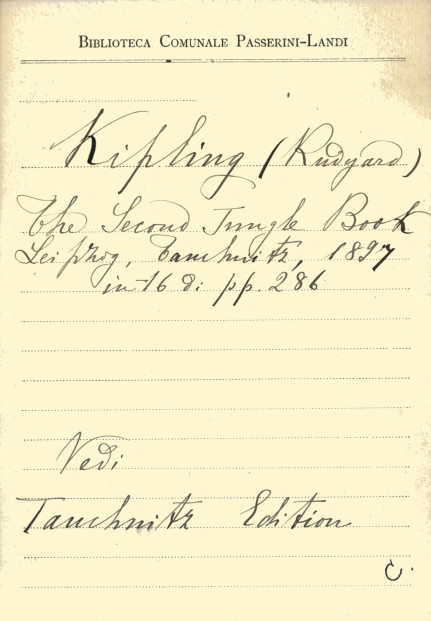 BIBLIOTECA COMUNALE PASSERINI-LANDI
Kipling (Rudyard)
The Second Jungle Book
Leipzig, Tauchnitz, 1897
in-16 di pp. 286
Vedi
Tauchnitz Edition
C.